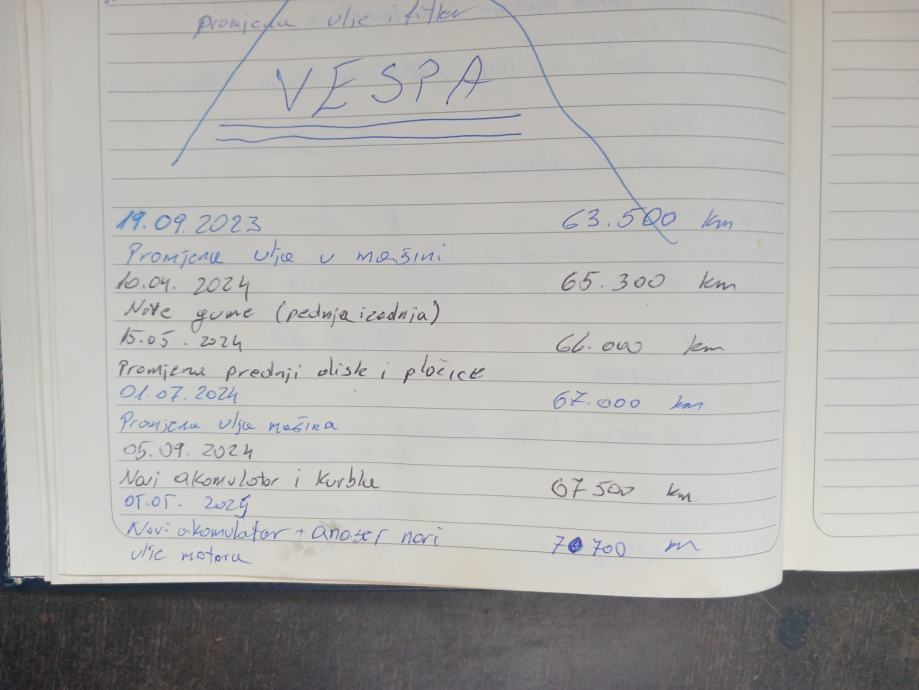 promjena ulje i filter
VESPA
19.09.2023 63.500 km
Promjena ulja u mašini
10.04. 2024 65.300 km
Nove gume (pednja i zadnja)
15.05. 2024 66.000 km
Promjena prednji disk i pločice
01.07.2024 67.000 km
Promjena ulja mašina
05.09.2024
Novi akomulator i kurble 67500 km
05.2025
Novi akomulator + anaser novi 70700 m
ulje motora